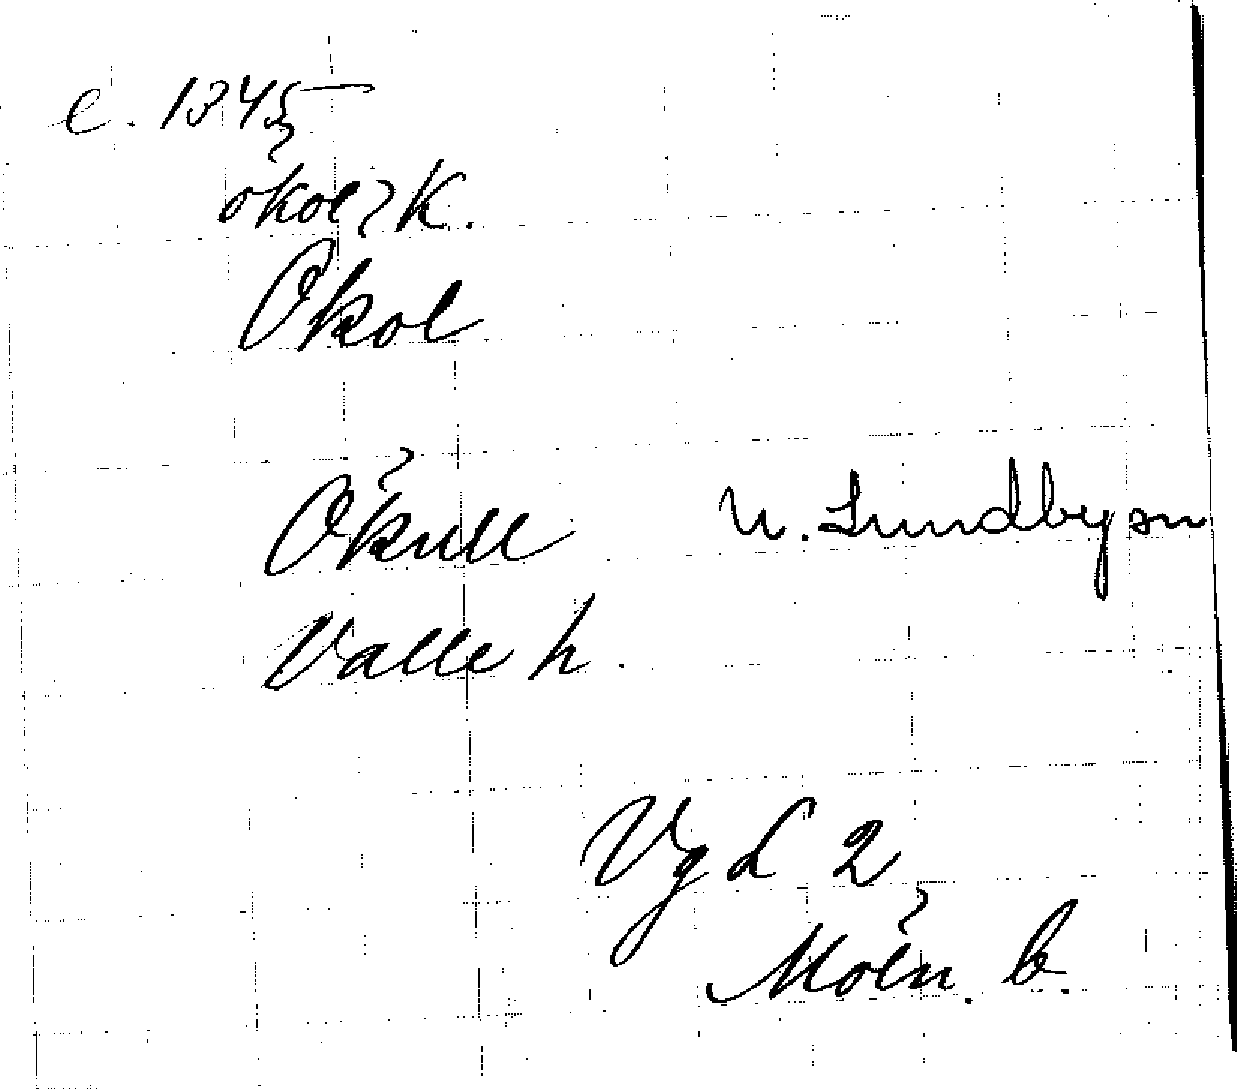 c. 1345
økolz K.
Økol
Økull N. Lundby sn
Valle h.
VgL 2
Moln. b.